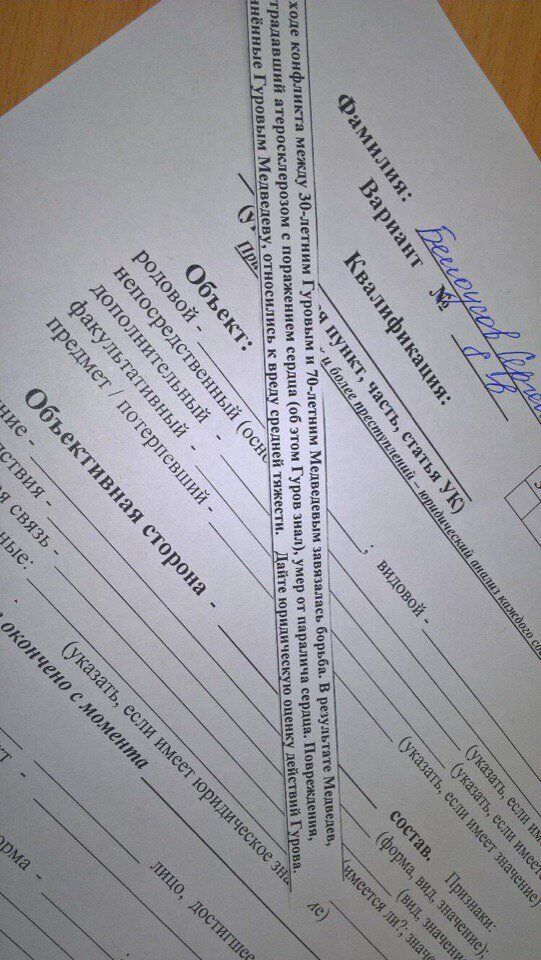 ходе конфликта между 30-летним Гуровым и 70-летним Медведевым завязалась борьба. В результате Медведев,
традавший атеросклерозом с поражением сердца (об этом Гуров знал), умер от паралича сердца. Повреждения,
инённые Гуровым Медведеву, относились к вреду средней тяжести. Дайте юридическую оценку действий Гурова.
Фамилия: Белоусов
Вариант №
Квалификация:
я пункт, часть, статья УК)
и более преступлений – юридический анализ каждого
(У
при
состав.
Признаки:
Объект:
родовой - ; видовой -
непосредственный (осно (указать, если
дополнительный - (указать, если имеет
факультативный - (указать, если имеет значение)
предмет / потерпевший -
Объективная сторона - (форма, вид, значение);
ние - (вид, значени
ствия - (имеется ли?, значе
я связь -
ные:
(указать, если имеет юридическое зна ие)
окончено с момента
кт - лицо, достигшее
орма -